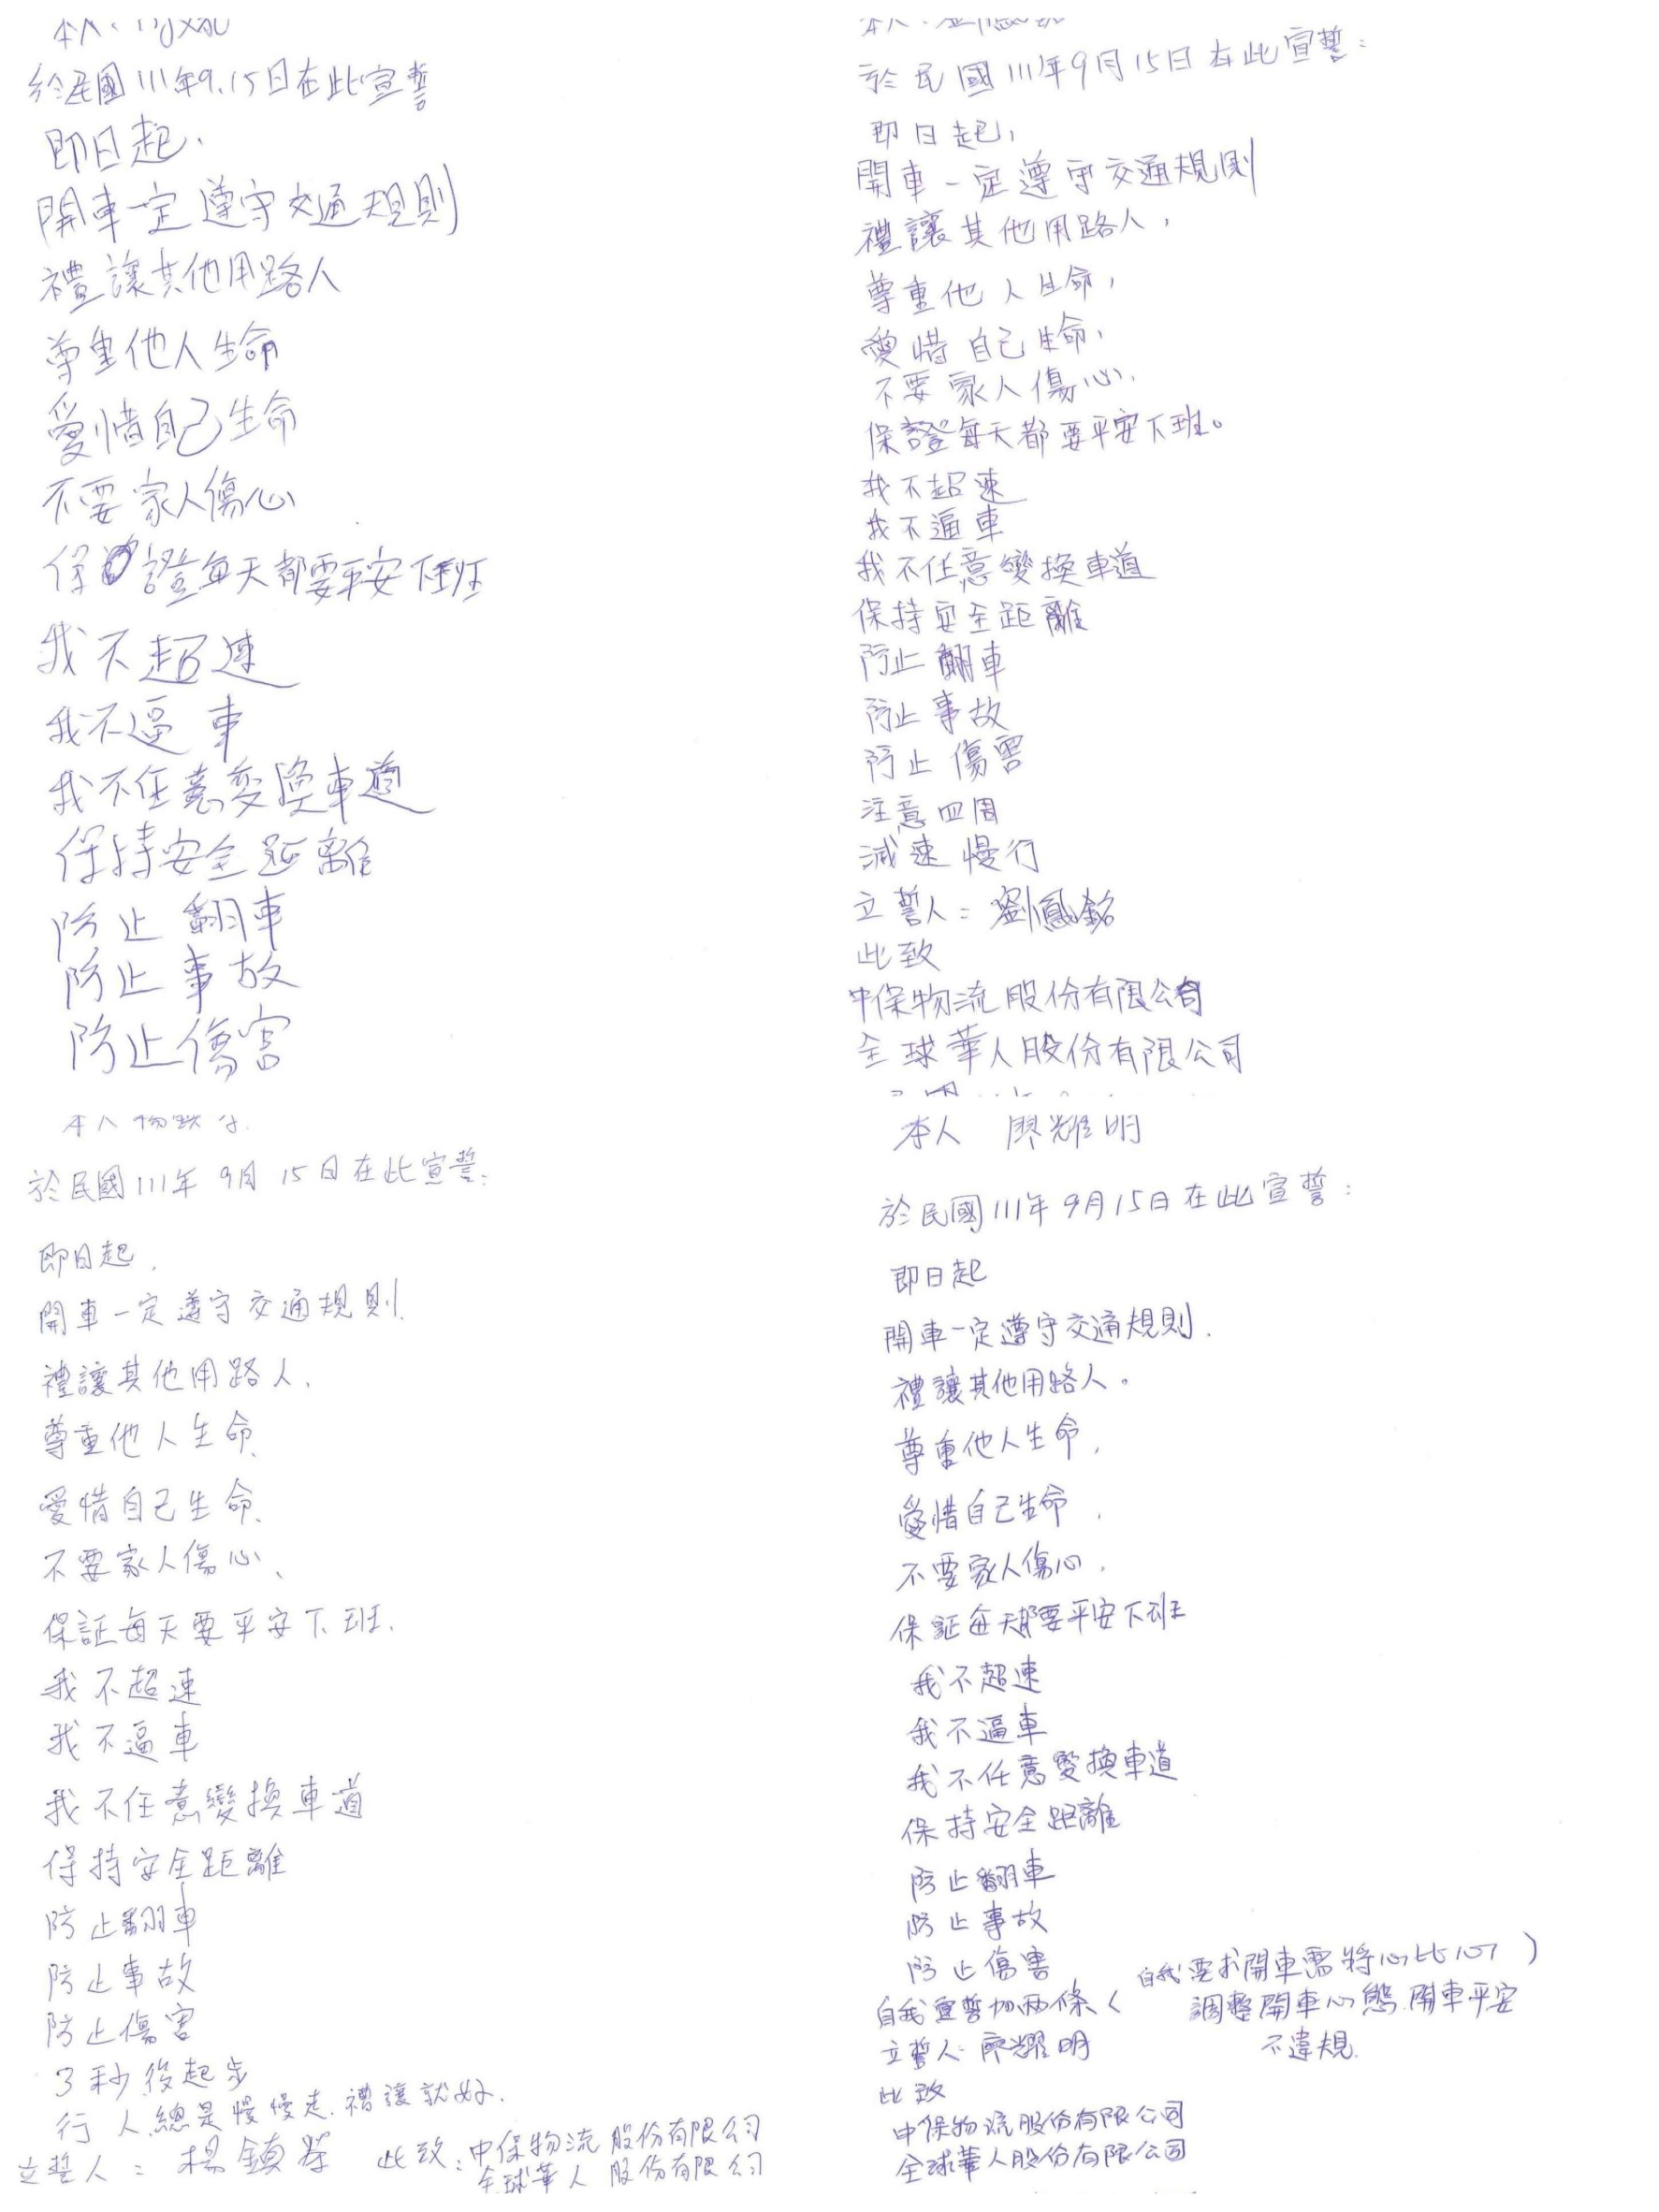 本人
於民國111年9.15日在此宣誓
即日起.
開車一定遵守交通規則
禮讓其他用路人
尊重他人生命
愛惜自己生命
不要家人傷心
保證每天都要平安下班
我不超速
我不逼車
我不任意變換車道
保持安全距離
防止翻車
防止事故
防止傷害
本人
於民國111年9月15日在此宣誓:
即日起,
開車一定遵守交通規則
禮讓其他用路人,
尊重他人生命,
愛惜自己生命,
不要家人傷心.
保證每天都要平安下班。
我不超速
我不逼車
我不任意變換車道
保持安全距離
防止翻車
防止事故
防止傷害
注意四周
減速慢行
立誓人:劉鳳銘
此致
中保物流股份有限公司
全球華人股份有限公司
本人
於民國111年9月15日在此宣誓:
即日起.
開車一定遵守交通規則.
禮讓其他用路人.
尊重他人生命、
愛惜自己生命、
不要家人傷心、
保証每天要平安下班.
我不超速
我不逼車
我不任意變換車道
保持安全距離
防止翻車
防止事故
防止傷害
3秒後起步
行人總是慢慢走.禮讓就好.
立誓人:楊鎮 此致:中保物流股份有限公司
全球華人股份有限公司
本人 廖耀明
於民國111年9月15日在此宣誓:
即日起
開車一定遵守交通規則.
禮讓其他用路人。
尊重他人生命,
愛惜自己生命,
不要家人傷心.
保証每天都要平安下班
我不超速
我不逼車
我不任意變換車道
保持安全距離
防止翻車
防止事故
防止傷害
自我宣誓加兩條(自我要求開車需將心比心)
調整開車心態.開車平安
不違規.
立誓人.廖耀明
此致
中保物流股份有限公司
全球華人股份有限公司